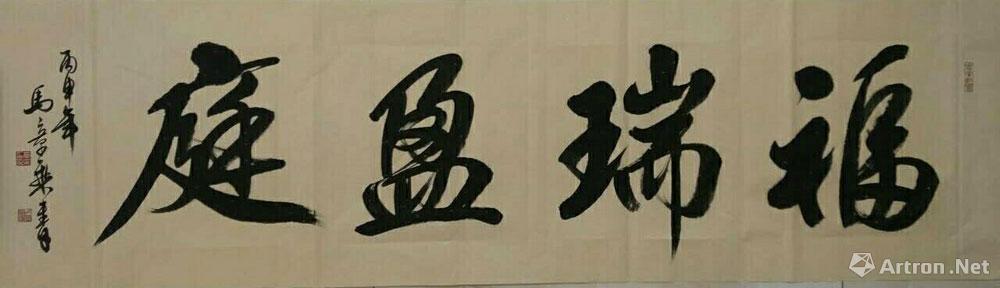 福瑞盈庭
丙申年
馬章乘書
Artron.Net